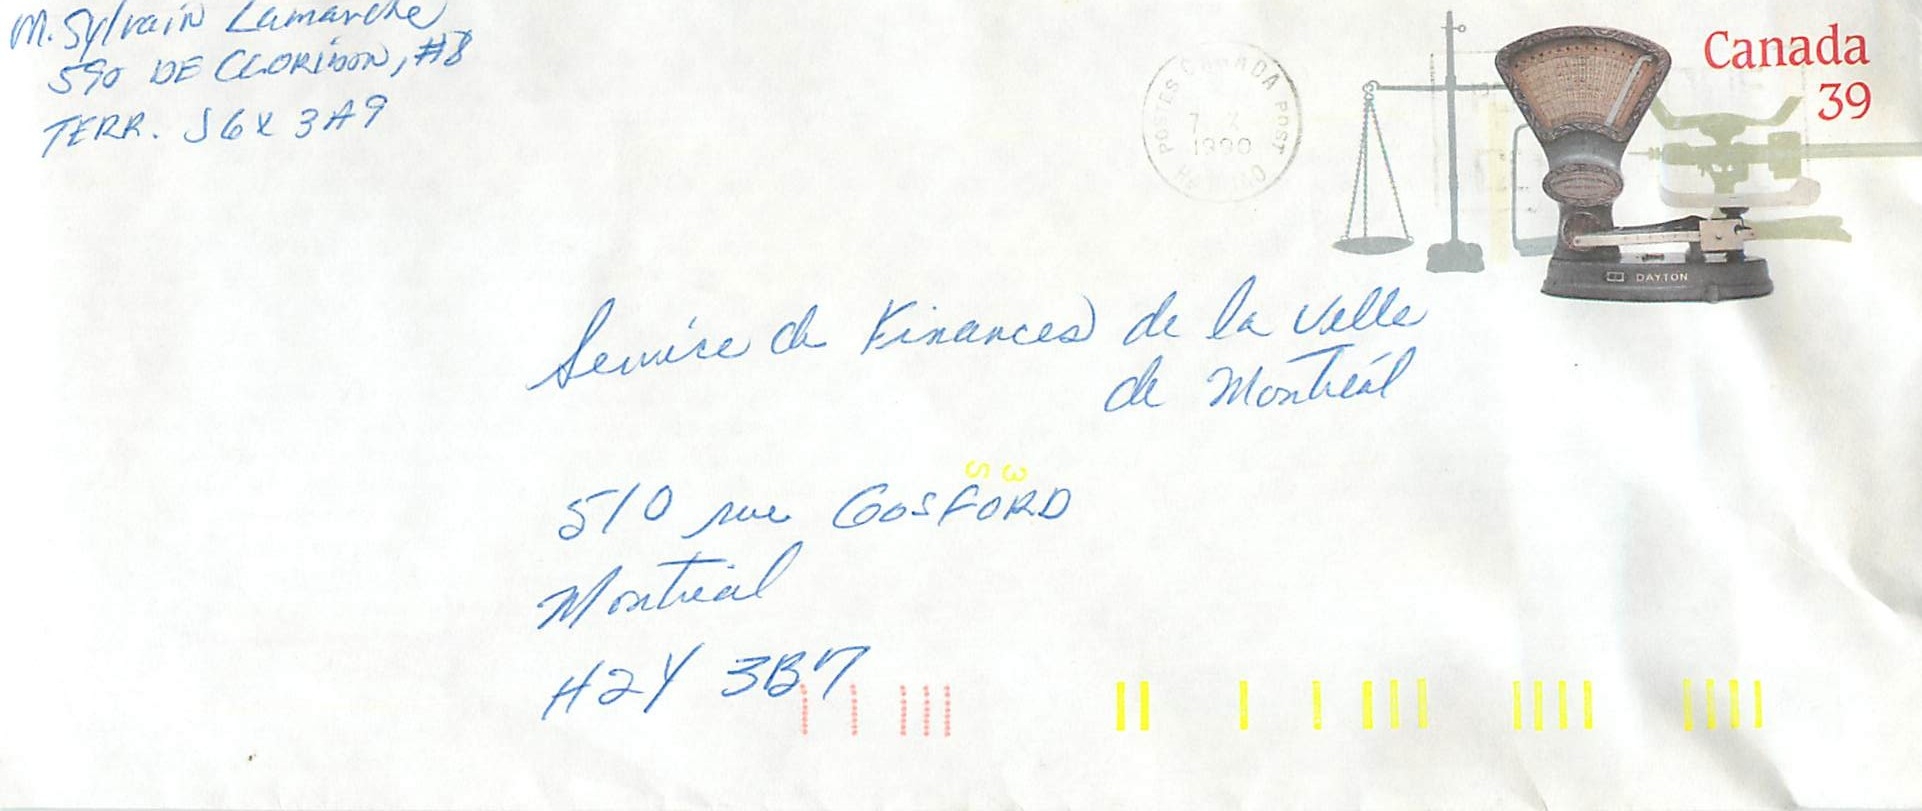 M. Sylvain Lamarche
590 DE CLORIDON, #8
TERR. J6X 3A9
Canada
39
POSTES CANADA POST
1990
DAYTON
Service de Finances de la Ville
de Montréal
S 3
510 rue GOSFORD
Montréal
H2Y 3B7